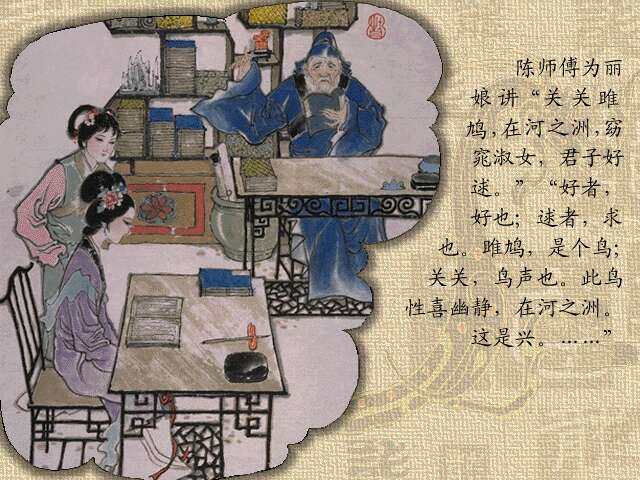 陈师傅为丽
娘讲“关关雎
鸠,在河之洲,窈
窕淑女，君子好
逑。”“好者，
好也；逑者，求
也。雎鸠，是个鸟；
关关，鸟声也。此鸟
性喜幽静，在河之洲。
这是兴。……”